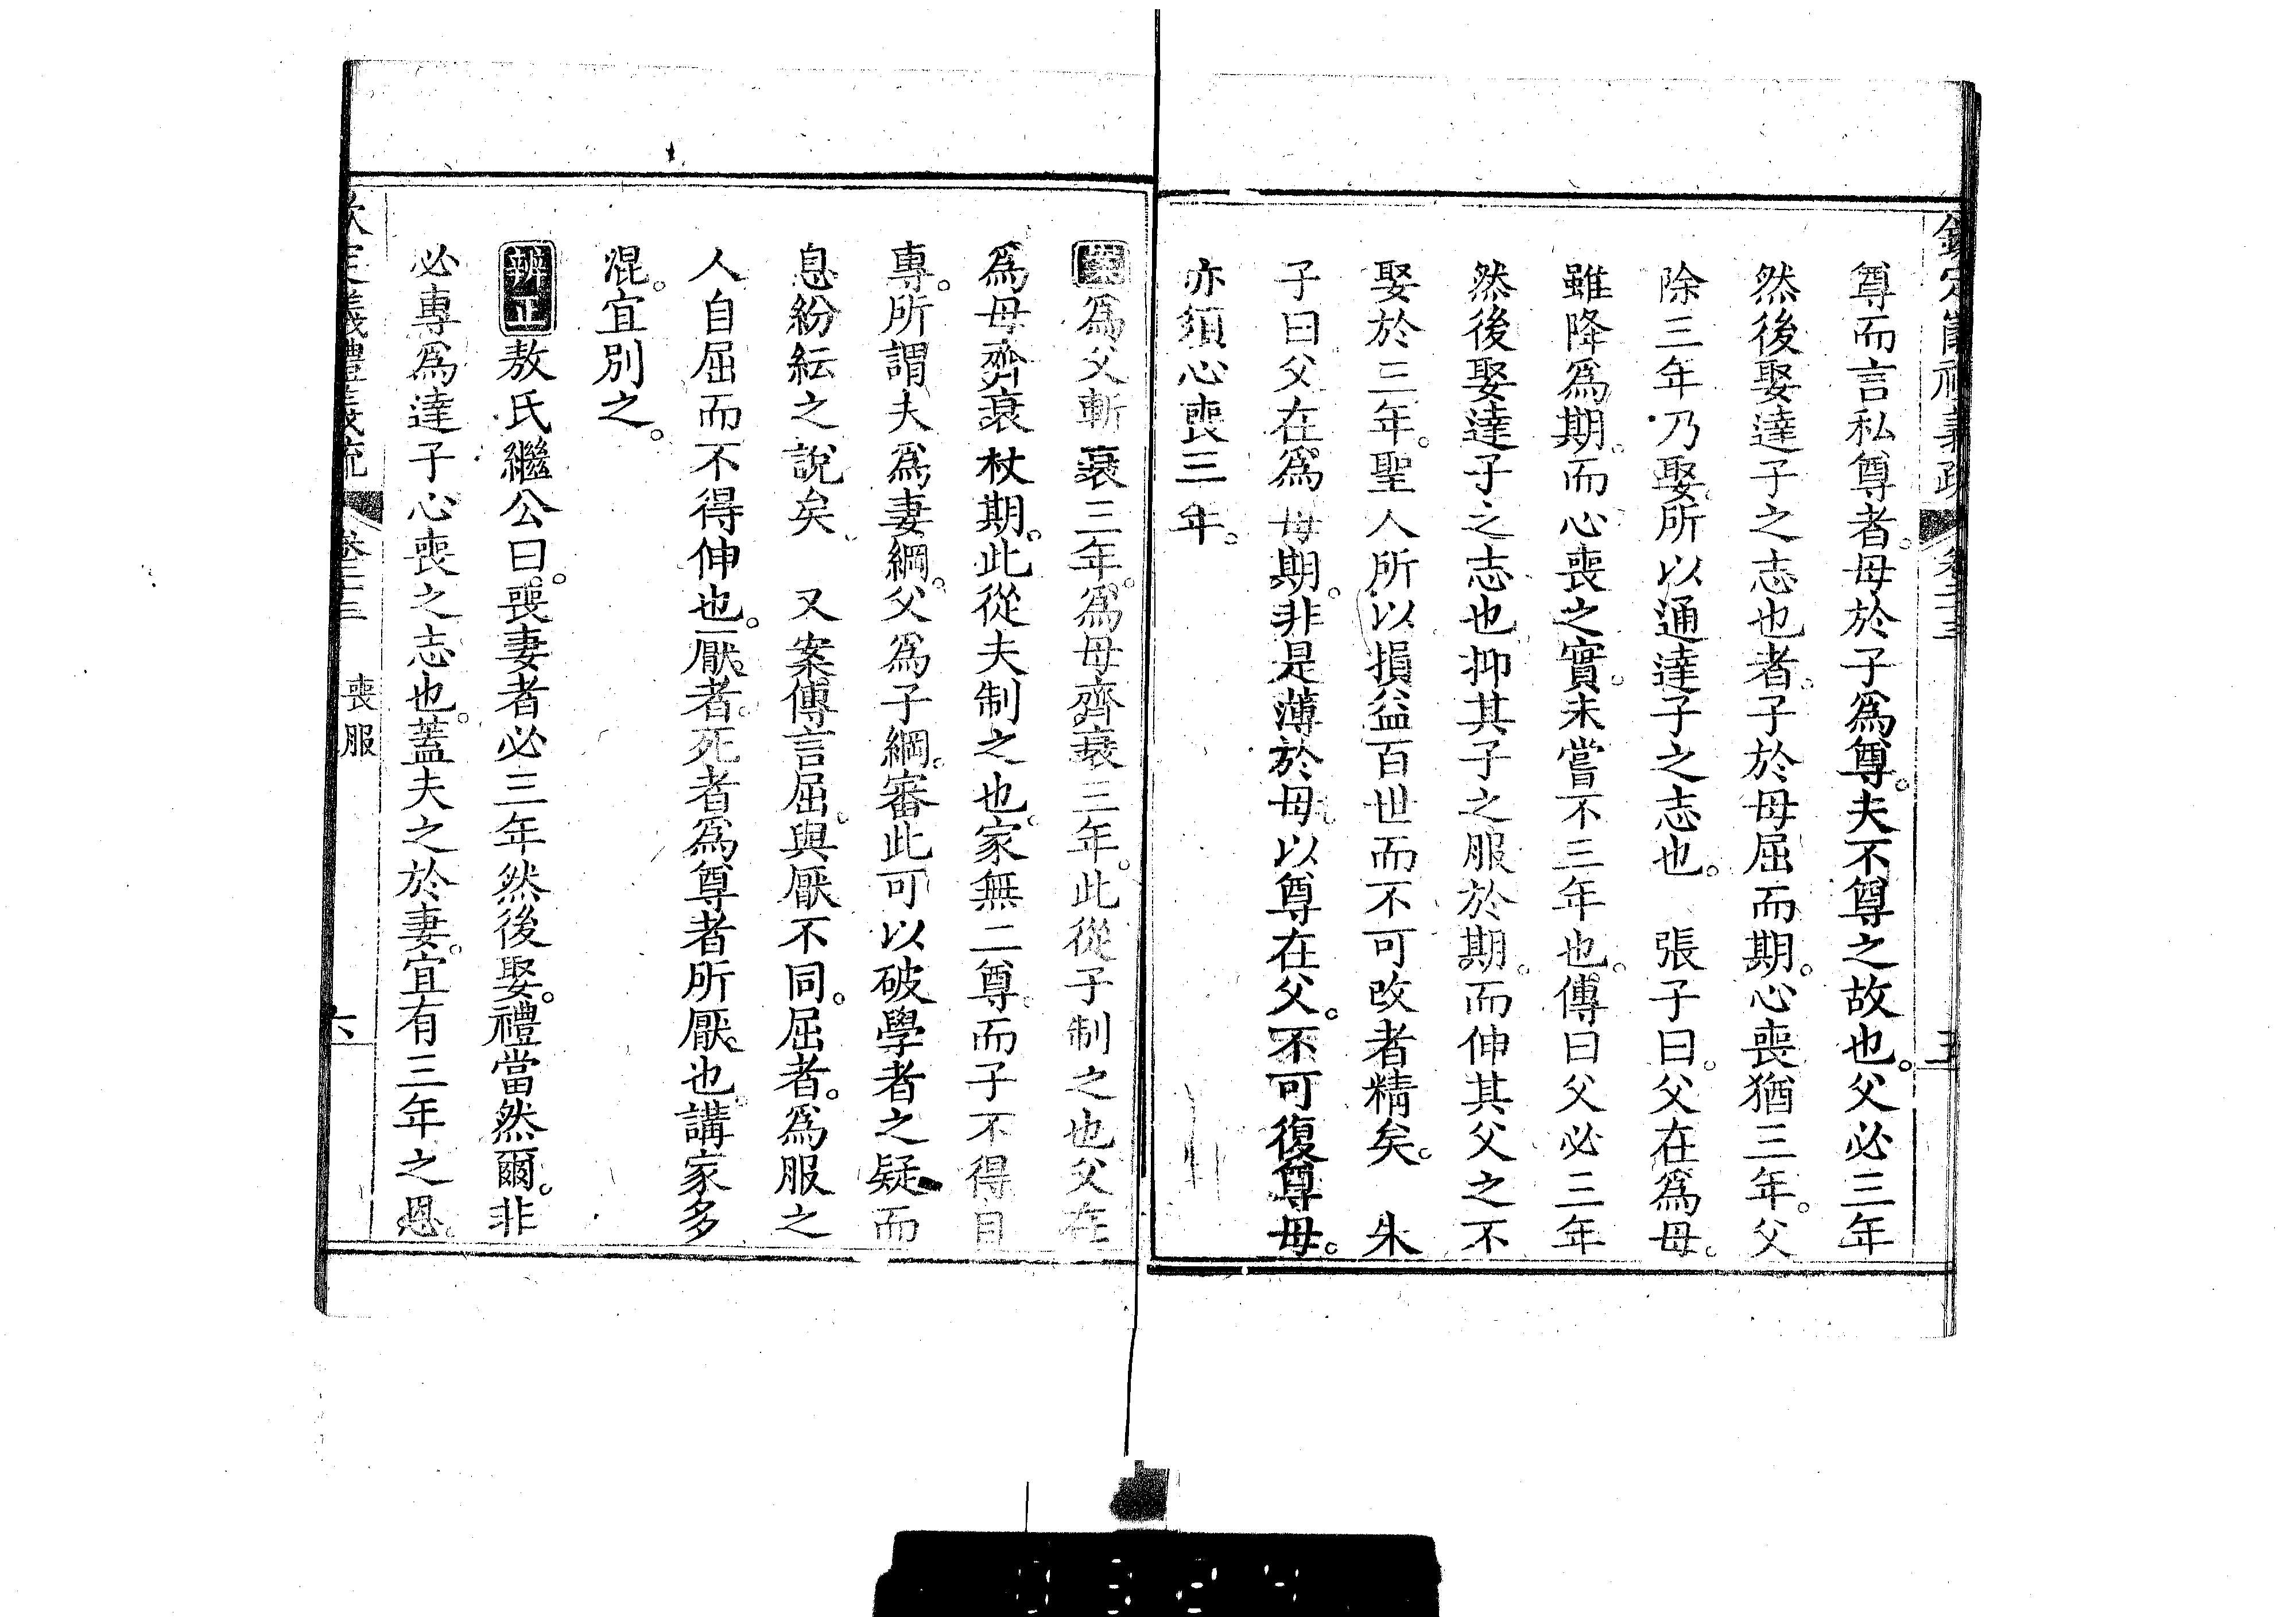 欽定儀禮義疏 卷二十三 五
尊而言私尊者。母於子爲尊。夫不尊之故也。父必三年
然後娶達子之志也者。子於母屈而期。心喪猶三年。父
除三年乃娶。所以通達子之志也。 張子曰。父在爲母。
雖降爲期。而心喪之實。未嘗不三年也。傳曰父必三年
然後娶達子之志也。抑其子之服於期。而伸其父之不
娶於三年。聖人所以損益百世而不可改者精矣。 朱
子曰。父在爲母期。非是薄於母。以尊在父。不可復尊母。
亦須心喪三年。
案爲父斬衰三年。爲母齊衰三年。此從子制之也父在
爲母齊衰杖期。此從夫制之也。家無二尊。而子不得自
專。所謂夫爲妻綱。父爲子綱。審此可以破學者之疑而
息紛紜之說矣 又案傳言屈。與厭不同。屈者。爲服之
人自屈而不得伸也。厭者。死者爲尊者所厭也。講家多
混。宜別之。
辨正敖氏繼公曰。喪妻者必三年然後娶。禮當然爾。非
必專爲達子心喪之志也。蓋夫之於妻。宜有三年之恩。
欽定儀禮義疏 卷二十三 喪服 六